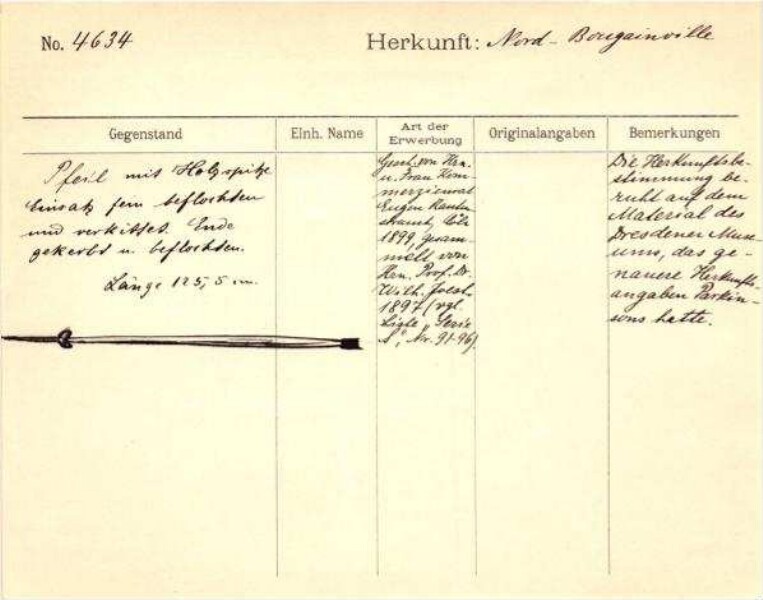 No. 4634
Herkunft: Nord-Bougainville
Gegenstand
Einh. Name
Art der
Erwerbung
Originalangaben
Bemerkungen
Pfeil mit Holzspitze
Einsatz fein beflochten
und verkittet. Ende
gekerbt u. beflochten.
Länge 125,5 cm.
Gesch. von Hrn.
u. Frau Kom-
merzienrat
Eugen Rauten-
strauch, Cöln
1899, gesam-
melt von
Hrn. Prof. Dr.
Wilh. Joest
1897 (vgl.
Liste „Serie
S", Nr. 91-96).
Die Herkunftsbe-
stimmung be-
ruht auf dem
Material des
Dresdener Muse-
ums, das ge-
nauere Herkunfts-
angaben Parkin-
sons hatte.